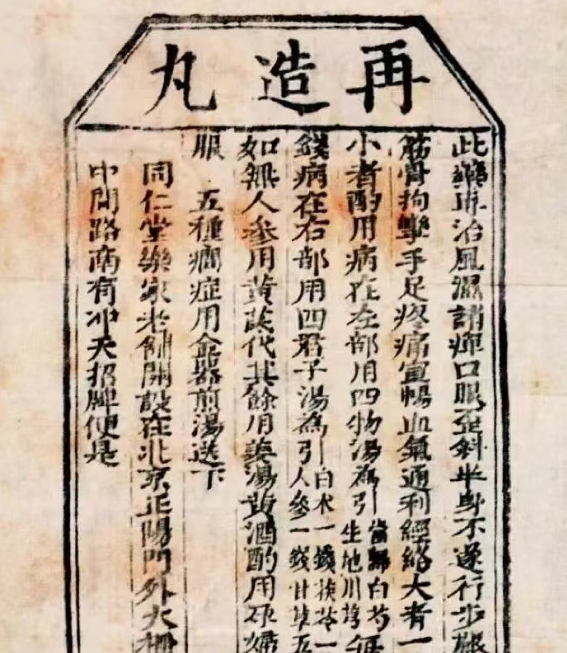 再造丸
此藥專治風濕諸痺口眼歪斜半身不遂行步艱
筋骨拘攣手足疼痛宣暢血氣通利經絡大者一
小者酌用病在左部用四物湯為引當歸白芍 生地川芎
錢病在右部用四君子湯為引白朮一錢茯苓一 人參一錢甘草五
如無人參用黃芪代其餘用姜湯黃酒酌用孕婦
服 五種癇症用金器煎湯送下
同仁堂樂家老鋪開設在北京正陽門外大柵
中間路南有冲天招牌便是